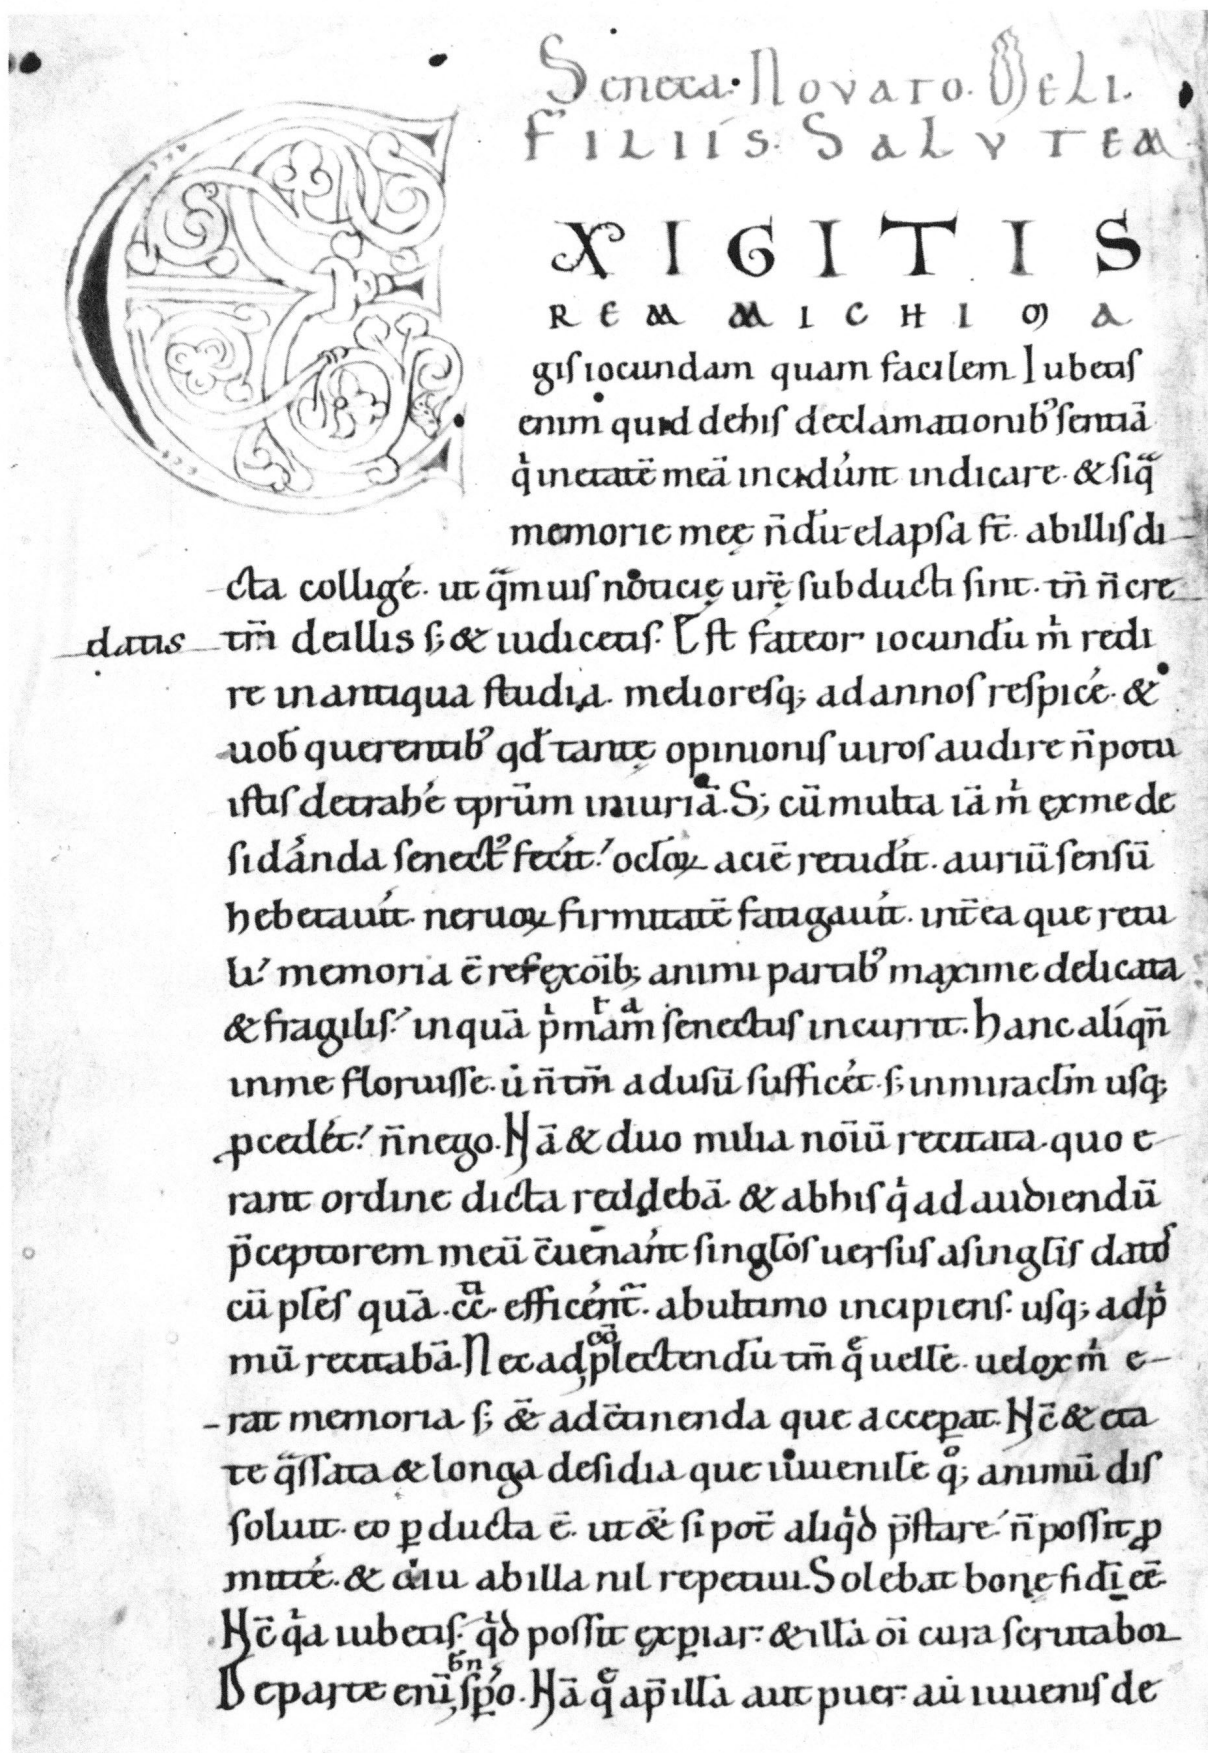 Seneca. Novato. Meli.
Filiis. Salutem
EXIGITIS
REM MICHI MA
gis iocundam quam facilem Iubetis
enim quid dehis declamationib᾽ sentiā
qͥ inetatē meā incidúnt indicare. & siqᷓ
memorie meę n̄dū elapsa st̄. abillis di-
cta colligé. ut qᷓmuis noticię urę̄ subducti sint. tn̄ n̄ cre-
datis tm̄ deillis s; & iudicetis. Est fateor iocundū mͥ redi
re inantiqua studia. melioresq; adannos respicé. &
uob̄ querentib᾽ qd̄ tantę opinionis uiros audire n̄ potu
istis detrahé tprūm iniuriā. S; cū multa iā mͥ ęxme de
sidánda senect᾽ fecit.᾽ oclōꝝ aciē retudit. auriū sensū
hebetauit. neruoꝝ firmitatē fatigauit. int̄ea que retu
li.᾽ memoria ē reręxōib; animi partib᾽ maxime delicata
& fragilis.᾽ inquā pͥmām senectus incurrit. hanc alíqn̄
inme floruisse. ú n̄tm̄ adusū sufficét. s; inmiraclm̄ usq;
ꝓcedét.᾽ n̄nego. Nā & duo milia noīū recitata. quo e-
rant ordine dicta reddebā. & abhis qͥ adaudiendū
p̄ceptorem meū c̄uenánt singlōs uersus asinglīs datos
cū plēs quā .cc. efficént̄. abultimo incipiens. usq; adpͥ
mū recitabā. Nec adcōplectendū tm̄ qͤ uellē. uelox mͥ e-
rat memoria s; &̄ adc̄tinenda que acceꝑat. Nc̄ & eta
te qᷓssata & longa desidia que iuuenilē qͦ; animū dis
soluit. eo ꝑducta ē. ut &̄ si pot̄ aliqͥd p̄stare.᾽ n̄ possit ꝓ
mitté. & diu abilla nil repetiui. Solebat bonę fidi eē.
Nc̄ qͥa iubetis. qͥd possit ęxꝑiar. & illā oī cura scrutabor
Departe eni᷒ bn̄ spo. Nā qͤ ap̄ illā aut puer. aū iuuenis de